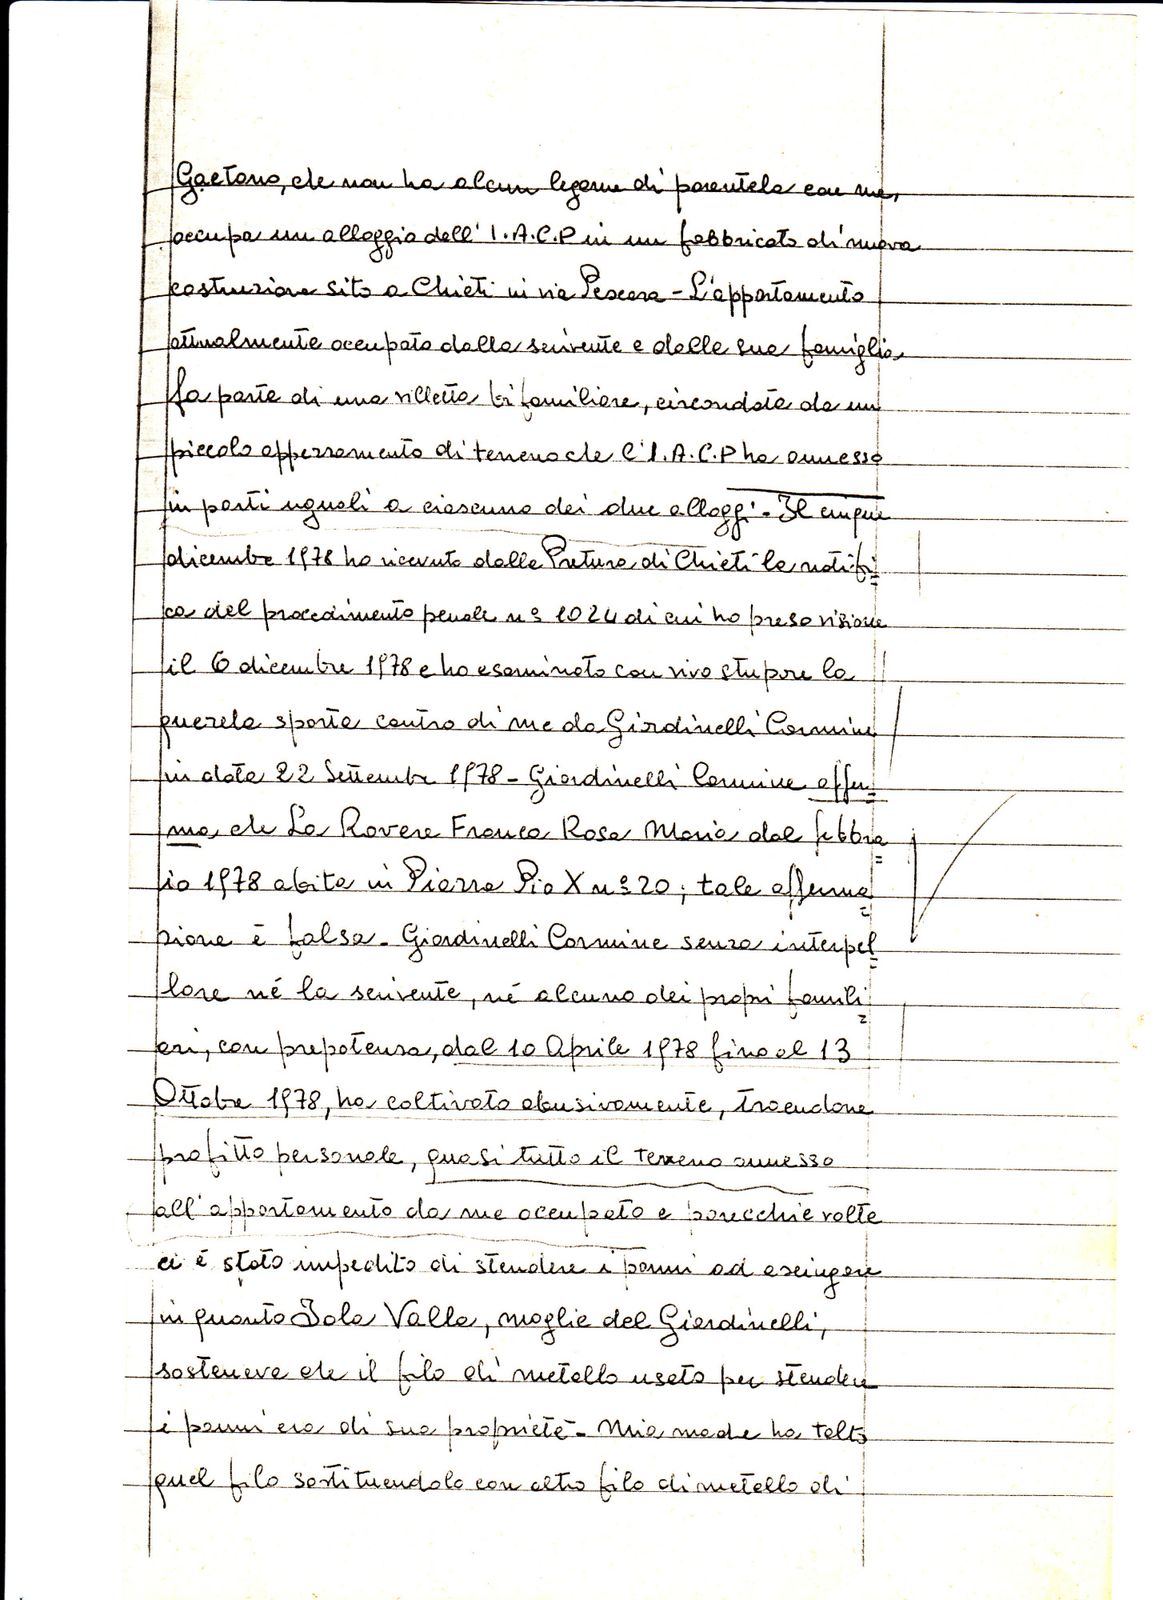 Gaetano, che non ha alcun legame di parentela con me,
occupa un alloggio dell' I.A.C.P in un fabbricato di nuova
costruzione sito a Chieti in via Pescara - L'appartamento
attualmente occupato dalla scrivente e dalla sua famiglia
fa parte di una villetta bifamiliare, circondata da un
piccolo appezzamento di terreno che l'I.A.C.P ha annesso
in parti uguali a ciascuno dei due alloggi - Il cinque
dicembre 1978 ho ricevuto dalla Pretura di Chieti la notifi=
ca del procedimento penale n° 1024 di cui ho preso visione
il 6 dicembre 1978 e ho esaminato con vivo stupore la
querela sporta contro di me da Giardinelli Carmine
in data 22 Settembre 1978 - Giardinelli Carmine affer=
ma che La Rovere Franca Rosa Maria dal febbra=
io 1978 abita in Piazza Pio X n° 20; tale afferma=
zione è falsa - Giardinelli Carmine senza interpel=
lare né la scrivente, né alcuno dei propri famili=
ari, con prepotenza, dal 10 Aprile 1978 fino al 13
Ottobre 1978, ha coltivato abusivamente, traendone
profitto personale, quasi tutto il terreno annesso
all'appartamento da me occupato e parecchie volte
ci è stato impedito di stendere i panni ad asciugare
in quanto Iola Valla, moglie del Giardinelli,
sosteneva che il filo di metallo usato per stendere
i panni era di sua proprietà - Mia madre ha tolto
quel filo sostituendolo con altro filo di metallo di